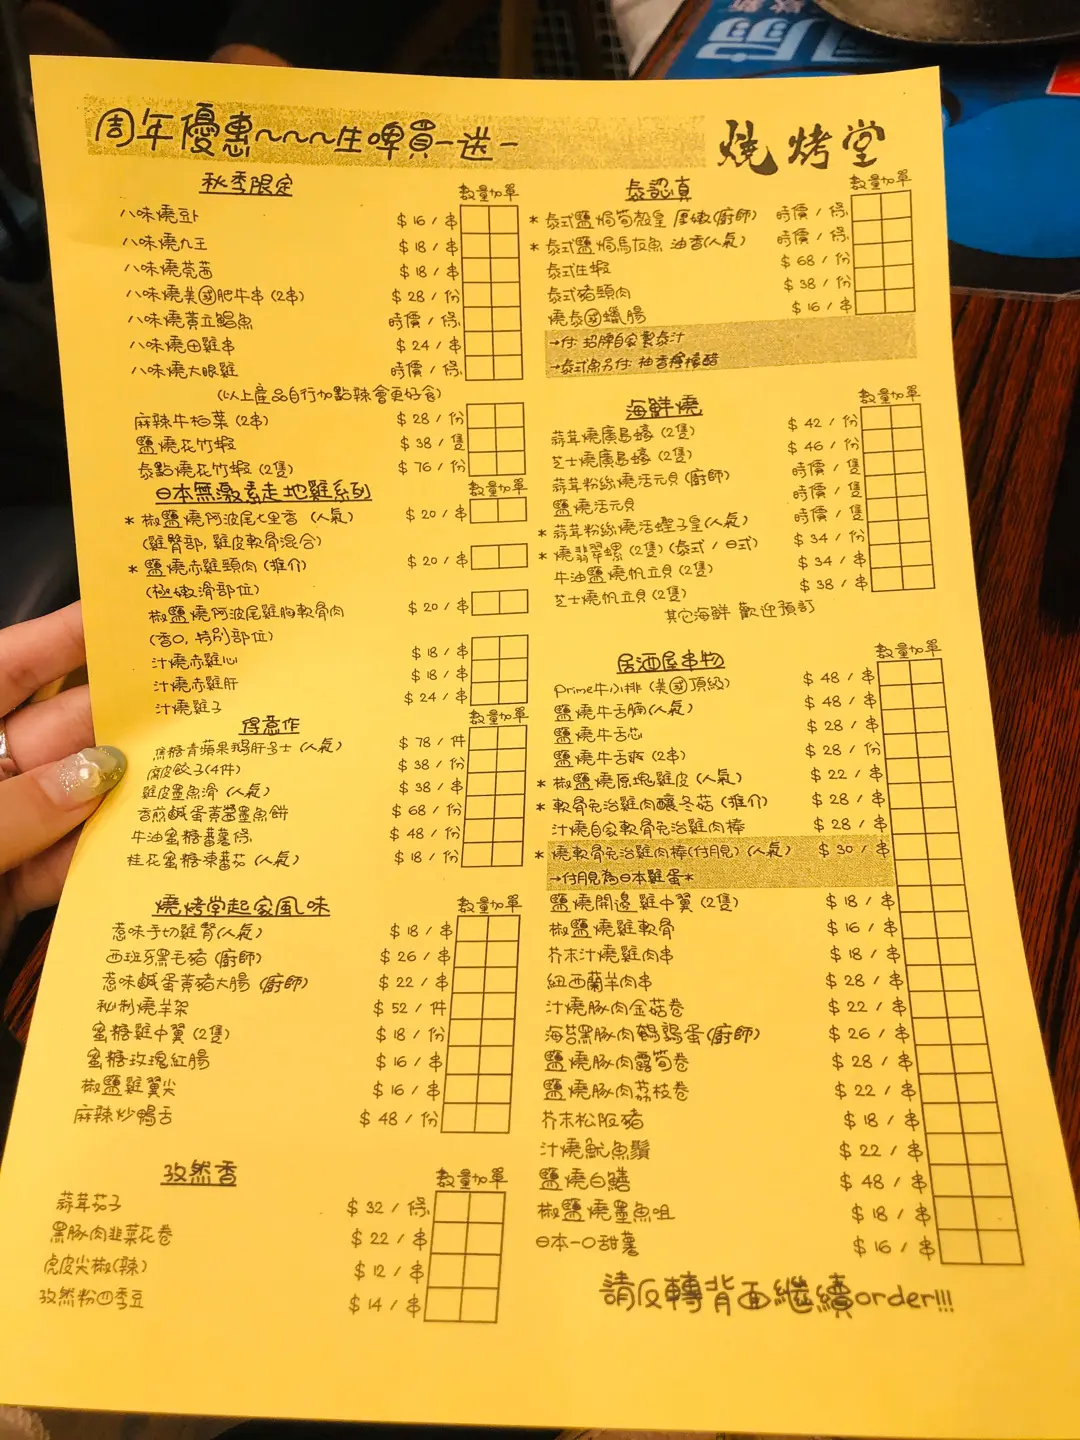 周年優惠~~~生啤買一送一
燒烤堂
秋季限定 數量加單
八味燒豆卜 $16/串
八味燒九王 $18/串
八味燒莞茜 $18/串
八味燒美國肥牛串(2串) $28/份
八味燒黃立鯧魚 時價/條
八味燒田雞串 $24/串
八味燒大眼雞 時價/條
(以上産品自行加點辣會更好食)
麻辣牛柏葉(2串) $28/份
鹽燒花竹蝦 $38/隻
泰點燒花竹蝦(2隻) $76/份
日本無激素走地雞系列 數量加單
*椒鹽燒阿波尾七里香(人氣) $20/串
(雞臀部,雞皮軟骨混合)
*鹽燒赤雞頸肉(推介) $20/串
(極嫩滑部位)
椒鹽燒阿波尾雞胸軟骨肉 $20/串
(香口,特別部位)
汁燒赤雞心 $18/串
汁燒赤雞肝 $18/串
汁燒雞子 $24/串
得意作 數量加單
焦糖青蘋果鵝肝多士(人氣) $78/件
窩皮餃子(4件) $38/份
雞皮墨魚滑(人氣) $38/串
香煎鹹蛋黃醬墨魚餅 $68/份
牛油蜜糖蕃薯條 $48/份
桂花蜜糖凍蕃茄(人氣) $18/份
燒烤堂起家風味 數量加單
惹味手切雞腎(人氣) $18/串
西班牙黑毛豬(廚師) $26/串
惹味鹹蛋黃豬大腸(廚師) $22/串
秘制燒羊架 $52/件
蜜糖雞中翼(2隻) $18/份
蜜糖玫瑰紅腸 $16/串
椒鹽雞翼尖 $16/串
麻辣炒鴨舌 $48/份
孜然香 數量加單
蒜茸茄子 $32/條
黑豚肉韭菜花卷 $22/串
虎皮尖椒(辣) $12/串
孜然粉四季豆 $14/串
泰認真 數量加單
*泰式鹽焗筍殼皇 厚嫩(廚師) 時價/條
*泰式鹽焗馬友魚 油香(人氣) 時價/條
泰式生蝦 $68/份
泰式豬頸肉 $38/份
燒泰國蠟腸 $16/串
→付:招牌自家製泰汁
→泰式魚另付:柚香檸檬醋
海鮮燒 數量加單
蒜茸燒廣島蠔(2隻) $42/份
芝士燒廣島蠔(2隻) $46/份
蒜茸粉絲燒活元貝(廚師) 時價/隻
鹽燒活元貝 時價/隻
*蒜茸粉絲燒活蟶子皇(人氣) 時價/隻
*燒翡翠螺(2隻)(泰式/日式) $34/份
牛油鹽燒帆立貝(2隻) $34/串
芝士燒帆立貝(2隻) $38/串
其它海鮮 歡迎預訂
居酒屋串物 數量加單
Prime牛小排(美國頂級) $48/串
鹽燒牛舌腩(人氣) $48/串
鹽燒牛舌芯 $28/串
鹽燒牛舌爽(2串) $28/份
*椒鹽燒原塊雞皮(人氣) $22/串
*軟骨免治雞肉釀冬菇(推介) $28/串
汁燒自家軟骨免治雞肉棒 $28/串
*燒軟骨免治雞肉棒(付月見)(人氣) $30/串
→付月見為日本雞蛋*
鹽燒開邊雞中翼(2隻) $18/串
椒鹽燒雞軟骨 $16/串
芥末汁燒雞肉串 $18/串
紐西蘭羊肉串 $28/串
汁燒豚肉金菇卷 $22/串
海苔黑豚肉鵪鶉蛋(廚師) $26/串
鹽燒豚肉露筍卷 $28/串
鹽燒豚肉荔枝卷 $22/串
芥末松阪豬 $18/串
汁燒魷魚鬚 $22/串
鹽燒白鱔 $48/串
椒鹽燒墨魚咀 $18/串
日本一口甜薯 $16/串
請反轉背面繼續order!!!